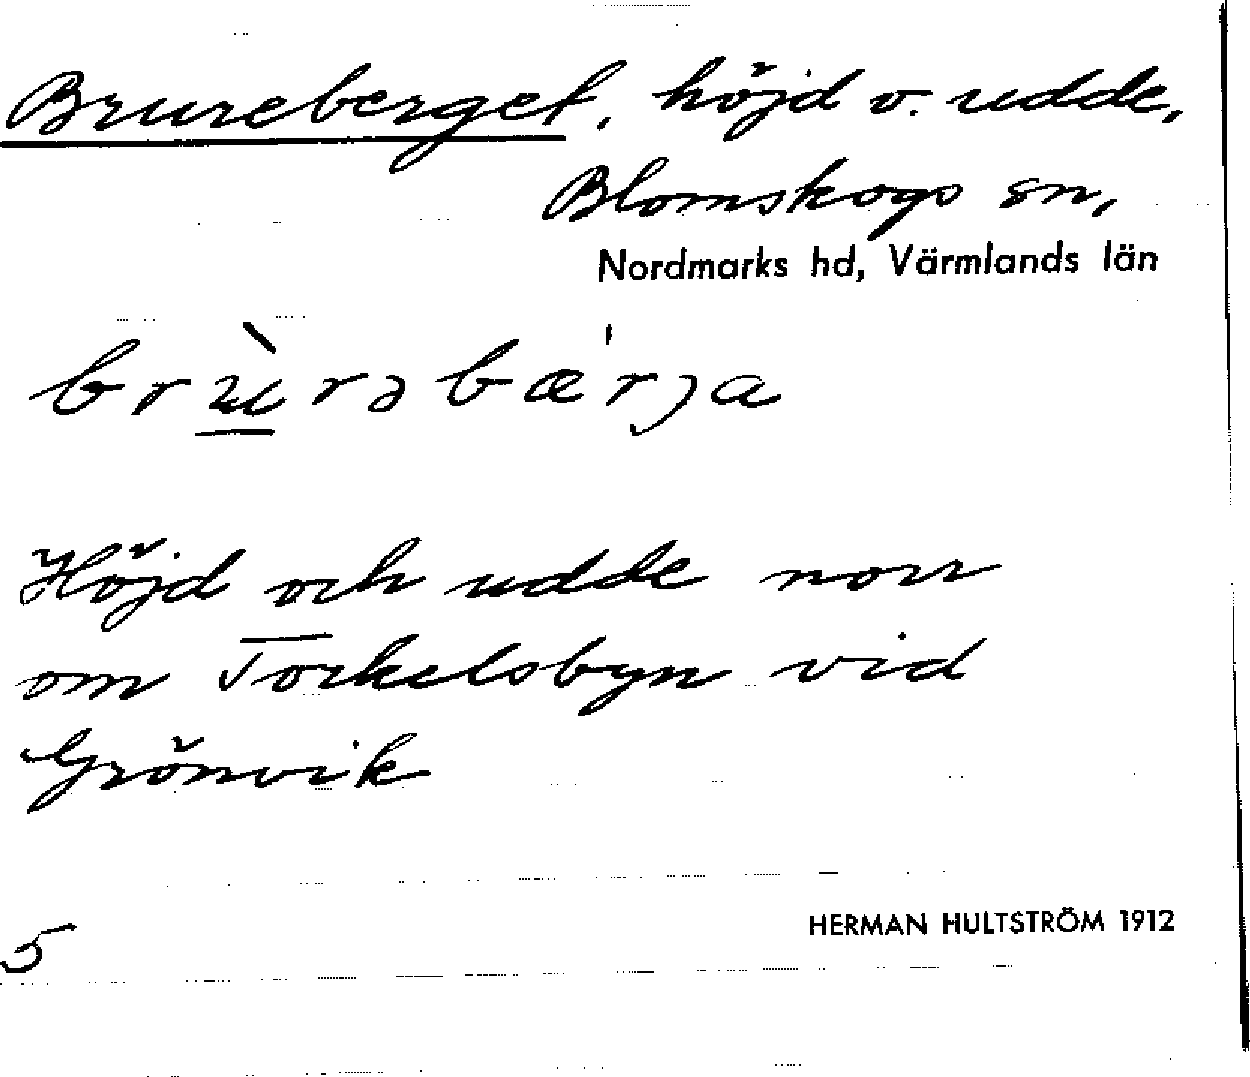 Brureberget, höjd o. udde,
Blomskogs sn,
Nordmarks hd, Värmlands län
brùrəbæ'rja
Höjd och udde norr
om Torkelsbyn vid
Grönvik
HERMAN HULTSTRÖM 1912
5